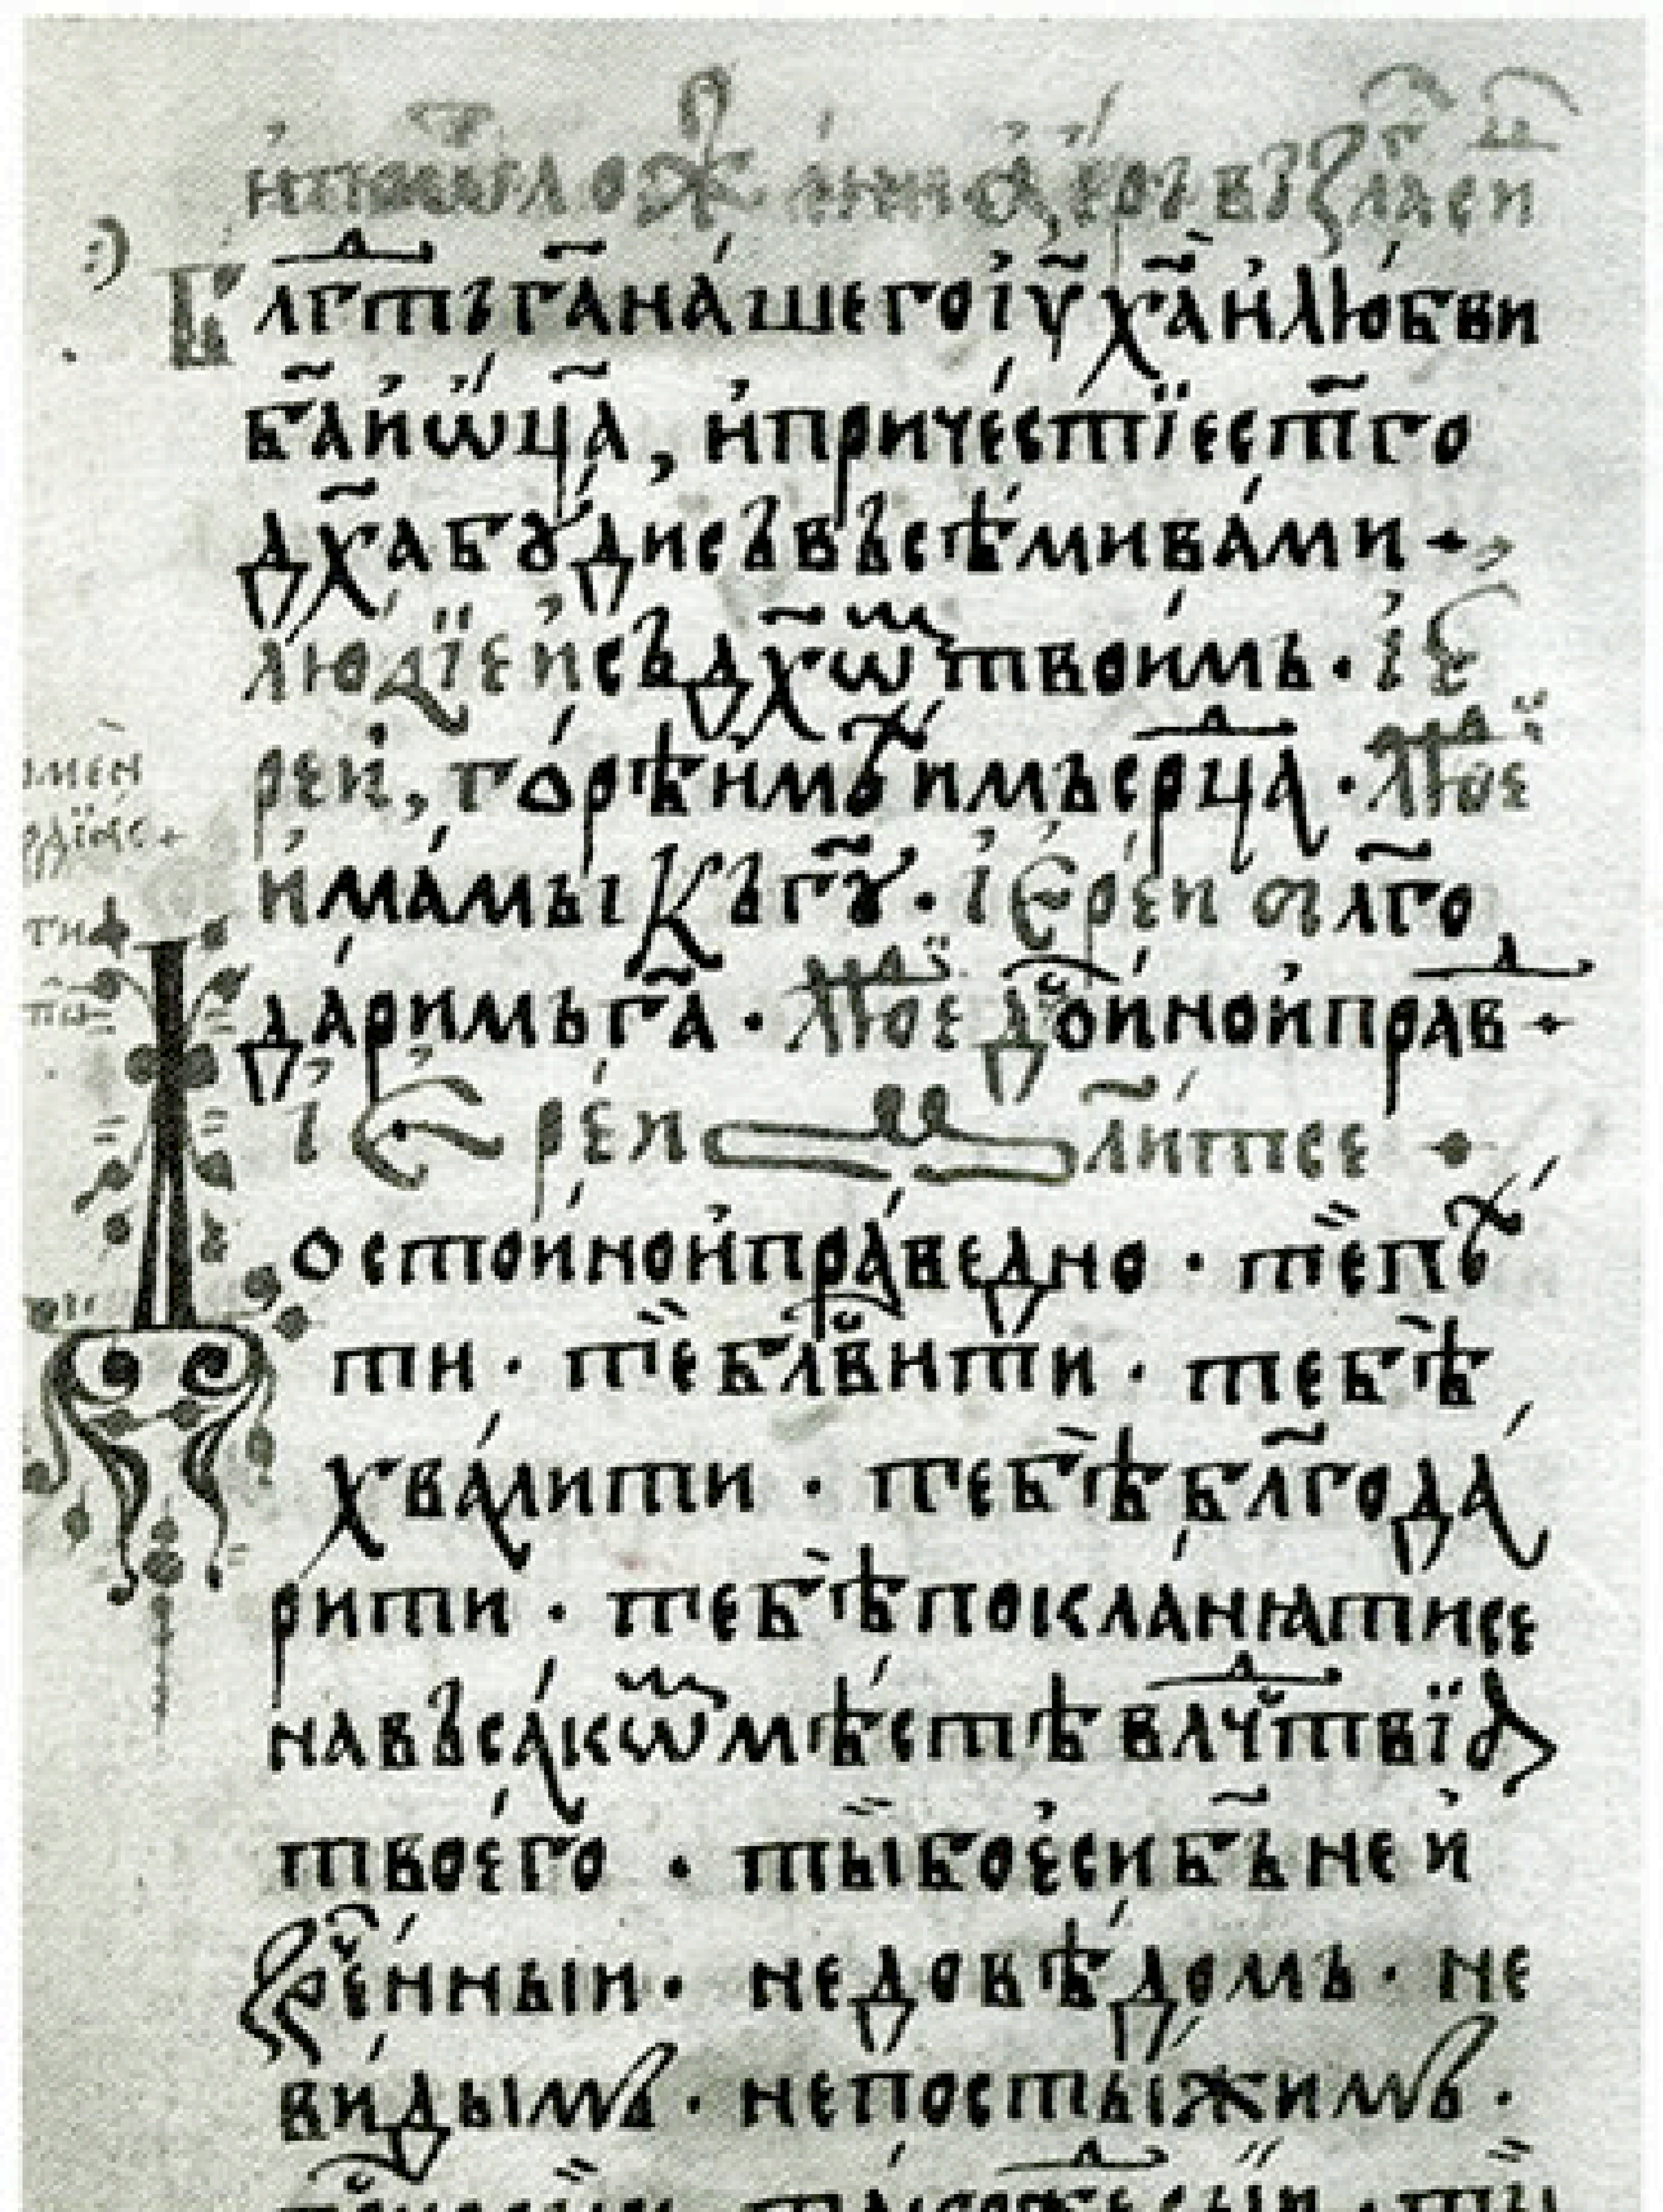 бл҃гⷣть га҃ на́шего і҆у҃ ха҃ и҆ любви
ба҃ и҆ ѡ҆ц҃а , и҆ приче́стїе ст҃го
дх҃а бꙋ́ди съ въсѣ́ми ва́ми
лю́дїе и҆ съ дх҃ѡⷨ твои́мь · і҆е
ре́и , го́рѣ и҆мѣ́имь срⷣца · лю́дїе
и҆ма́мы къ гꙋ҃ · і҆ере́и бл҃го
дари́мь га҃ · лю́дїе доⷭ҇йно и҆ правⷣ
і҆ере́и мл҃итсе
остойно и҆ пра́ведно · те̏ пѣ́
ти · те̏ блⷭ҇вити · тебѣ̀
хва́лити · тебѣ̀ бл҃года
рити · тебѣ̀ покла́нꙗтисе
на въса́коⷨ мѣ́стѣ влⷣчтвїа
твоего̀ · ты̏ бо є҆си бг҃ь не и҆
зреⷱ҇нныи · недовѣ́домь · не
ви́дымь · непости́жимь ·